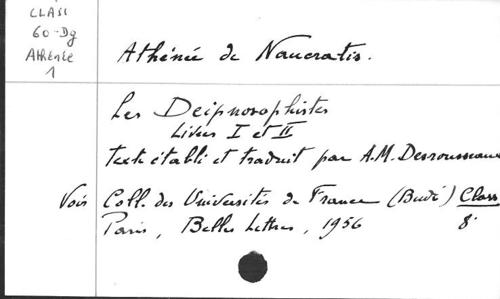 CLASS
60-Dg
Athénée
1
Athénée de Naucratis.
Les Deipnosophistes
Livres I et II
texte établi et traduit par A.M. Desrousseaux
Voir Coll. des Universités de France (Budé) Class
Paris, Belles Lettres, 1956 8°